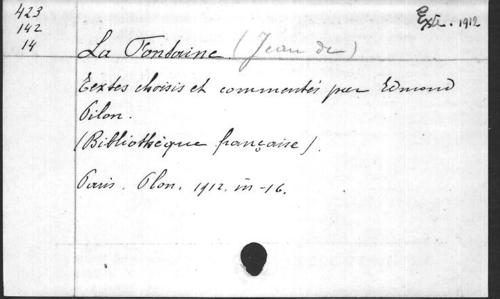 423
142
14
Ext. 1912
La Fontaine (Jean de)
Textes choisis et commentés par Edmond
Pilon.
(Bibliothèque française).
Paris. Plon. 1912. in-16.